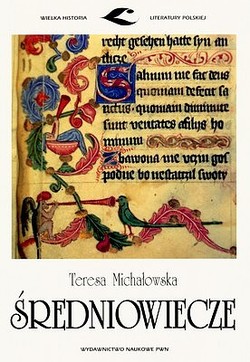 WIELKA HISTORIA LITERATURY POLSKIEJ
recht gesehen hatte syn an
dicze
Saluum me fac deus
quoniam defecit sa
nctus. quoniam diminute
sunt veritates a filys ho
minum
Zbawona me vczin gos
podne bo nestatczil swoty
Teresa Michałowska
ŚREDNIOWIECZE
WYDAWNICTWO NAUKOWE PWN